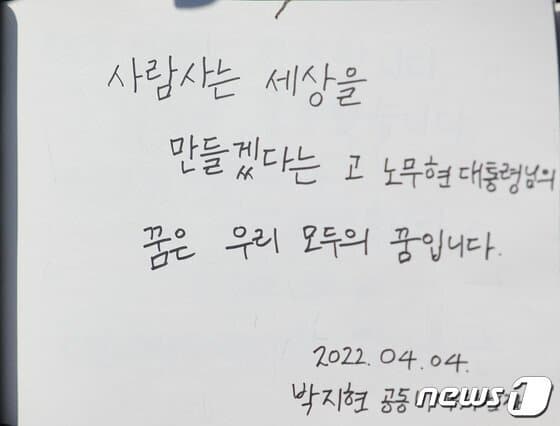 사람사는 세상을
만들겠다는 고 노무현 대통령님의
꿈은 우리 모두의 꿈입니다.
2022.04.04.
박지현 공동
news1